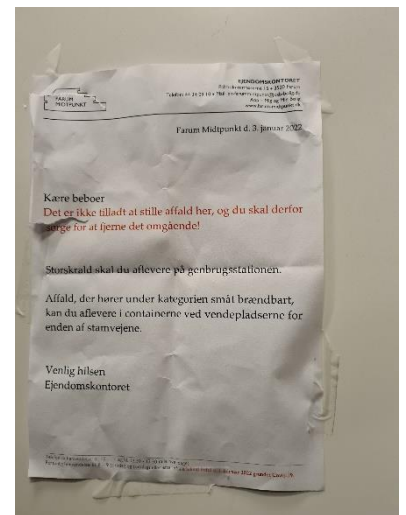 FARUM
MIDTPUNKT
EJENDOMSKONTORET
Farum Midtpunkt d. 3. januar 2022
Kære beboer
Det er ikke tilladt at stille affald her, og du skal derfor
sørge for at fjerne det omgående!
Storskrald skal du aflevere på genbrugsstationen.
Affald, der hører under kategorien småt brændbart,
kan du aflevere i containerne ved vendepladserne for
enden af stamvejene.
Venlig hilsen
Ejendomskontoret